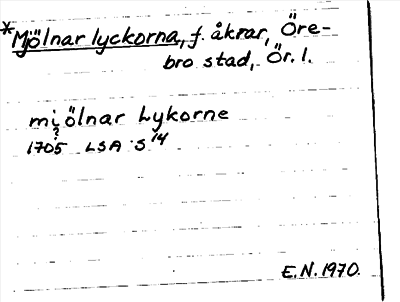 *Mjölnar lyckorna, f. åkrar, Öre-
bro stad, Ör. l.
miölnar Lykorne
?
1705 LSA S 14
E.N. 1970.